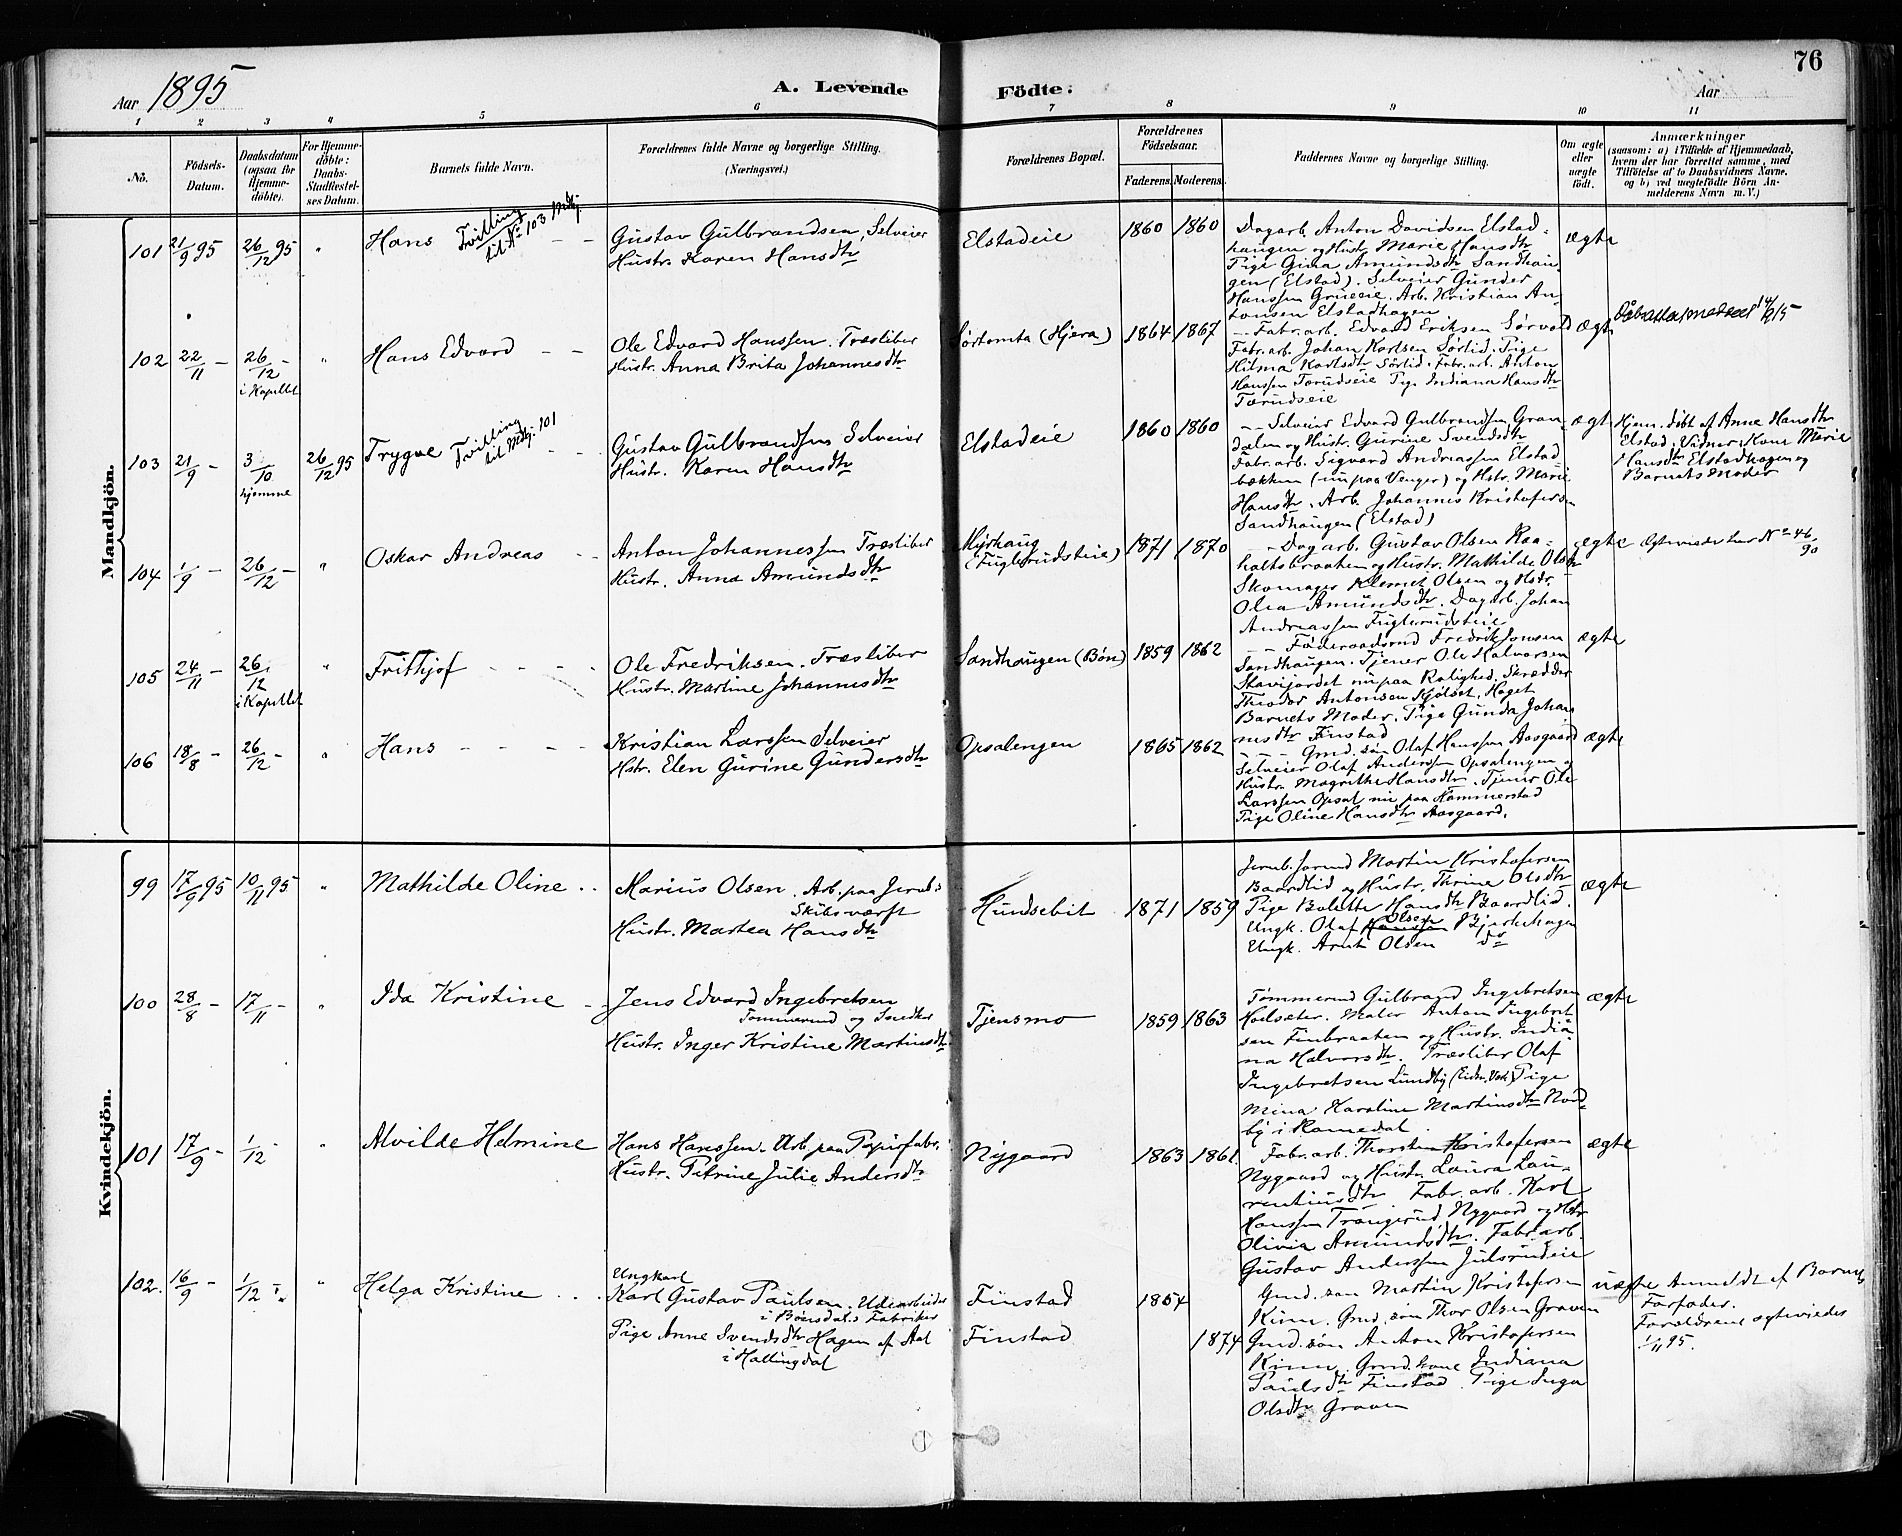 76
Aar 1895
A. Levende Födte:
Aar
1 2 3 4 5 6 7 8 9 10 11
No.
Födsels-Datum.
Daabsdatum (ogsaa for Hjemme-döbte).
For Hjemme-döbte: Daabs-Stadfæstel-ses Datum.
Barnets fulde Navn.
Forældrenes fulde Navne og borgerlige Stilling.
(Næringsvei.)
Forældrenes Bopæl.
Forældrenes Födselsaar.
Faderens. Moderens.
Faddernes Navne og borgerlige Stilling.
Om ægte eller uægte födt.
Anmærkninger
(saasom: a) i Tilfælde af Hjemmedaab,
hvem der har forrettet samme, med
Tilföielse af to Daabsvidners Navne.
og b) ved uægtefödte Börn An-
melderens Navn m. V.)
Mandkjön.
101 21/9 95 26/12 95 " Hans Tvilling til No 103 Mdkj
Gustav Gulbrandsen, Selveier
Hustr. Karen Hansdtr
Elstadeie 1860 1860
Dagarb. Anton Davidsen Elstad-
haugen og Hustr. Marie Hansdtr
Pige Gina Amundsdtr Sandhau-
gen (Elstad). Selveier Gunder
Hanssen Grueeie. Arb. Kristian An-
tonsen Elstadhagen
ægte
102 22/11 - 26/12 - i Kapellet " Hans Edvard
Ole Edvard Hanssen. Træsliber
Hustr. Anna Brita Johannesdtr
Sørtomta (Hjera) 1864 1867
Fabr. arb. Edvard Eriksen Sørvold
Fabr. arb. Johan Karlsen Sørlid. Pige
Hilma Karlsdtr Sørlid. Fabr. arb. Anton
Hanssen Tærudseie Pige Indiana Hansdtr
Tærudseie
ægte
103 21/9 - 3/10 hjemme 26/12 95 Trygve Tvilling til Mdkj. 101
Gustav Gulbrandsen Selveier
Hustr. Karen Hansdtr
Elstadeie 1860 1860
Selveier Edvard Gulbrandsen Gran-
dalen og Hustr. Gurine Svendsdtr
Fabr. arb. Sigvard Andreassen Elstad
bækken (nu paa Venger) og Hstr. Marie
Hansdtr. Arb. Johannes Kristofersen
Sandhaugen (Elstad)
ægte
Hjem. døbt af Anne Hansdtr
Elstad. Vidner, Kone Marie
Hansdtr Elstadhagen og
Barnets Moder
104 1/9 - 26/12 - " Oskar Andreas
Anton Johannessen Træsliber
Hustr. Anna Amundsdtr
Myrhaug (Fuglerudsteie) 1871 1870
Dagarb. Gustav Olsen Raa-
holtsbraaten og Hustr. Mathilde Olsdtr
Skomager Klemet Olsen og Hstr.
Olea Amundsdtr. Dagarb. Johan
Andreassen Fuglerudsteie
ægte
Ægteviede her No 46/90
105 24/11 - 26/12 i Kapellet " Frithjof
Ole Fredriksen. Træsliber
Hustr. Martine Johannesdtr
Sandhaugen (Bøn) 1859 1862
Föderaadsmd Fredrik Jonsen
Sandhaugen. Tjener Ole Halvorsen
nu paa Rolighed. Skrædder
Theodor Antonsen
Barnets Moder. Pige Gunda Johan
nesdtr Finstad
ægte
106 18/8 - 26/12 - " Hans
Kristian Larssen Selveier
Hstr. Elen Gurine Gundersdtr
Opsalengen 1865 1862
Gmd. søn Olaf Hanssen Aasgaard
Selveier Olaf Anderssen Opsalengen og
Hustr. Magrethe Hansdtr. Tjener Ole
Larssen Opsal nu paa Hammerstad
Pige Oline Hansdtr Aasgaard.
ægte
Kvindekjön.
99 17/9 95 10/11 95 " Mathilde Oline
Marius Olsen. Arb. paa Jernb.s
Skibsværft
Hustr. Martea Hansdtr
Hundsebit 1871 1859
Jernb. formd Martin Kristofersen
Baardlid og Hustr. Thrine Olsdtr
Pige Bolette Hansdtr Baardlid.
Ungk. Olaf Hanssen Olsen Bjerkehagen
Ungk. Arnt Olsen do
ægte
100 28/8 - 17/11 - " Ida Kristine
Jens Edvard Ingebretsen
Tømmermd og Snedker
Hustr. Inger Kristine Martinsdtr
Tjensmo 1859 1863
Tømmermd Gulbrand Ingebretsen
Holsæter. Maler Anton Ingebret
sen Finbraaten og Hustr. India
na Halvorsdtr. Træsliber Olaf
Ingebretsen Lundby (Eidsv. Verk) Pige
Mina Karoline Martinsdtr Nord-
by i Romedal.
ægte
101 17/9 - 1/12 - " Alvilde Helmine
Hans Hanssen. Arb. paa Papirfabr.
Hustr. Petrine Julie Andersdtr
Nygaard 1863 1861
Fabr. arb. Thorsten Kristofersen
Nygaard og Hustr. Laura Lau-
rentiusdtr. Fabr. arb. Karl
Hanssen Trangerud Nygaard og Hstr
Olivia Amundsdtr. Fabr. arb.
Gustav Anderssen Julsrudeie
ægte
102. 16/9 - 1/12 " Helga Kristine
Ungkarl
Karl Gustav Paulsen. Udearbeider
i Bønsdal.s Fabriker
Pige Anne Svendsdtr Hagen af Aal
i Hallingdal
Finstad 1854
Finstad 1874
Gmd. søn Martin Kristofersen
Kinn. Gmd. søn Thor Olsen Graven
Gmd. søn Anton Kristofersen
Kinn. Gmd. kone Indiana
Paulsdtr Finstad. Pige Inga
Olsdtr Graven
uægte
Anmeldt af Barnets
Farfader.
Forældrene ægteviedes
1/11 95.